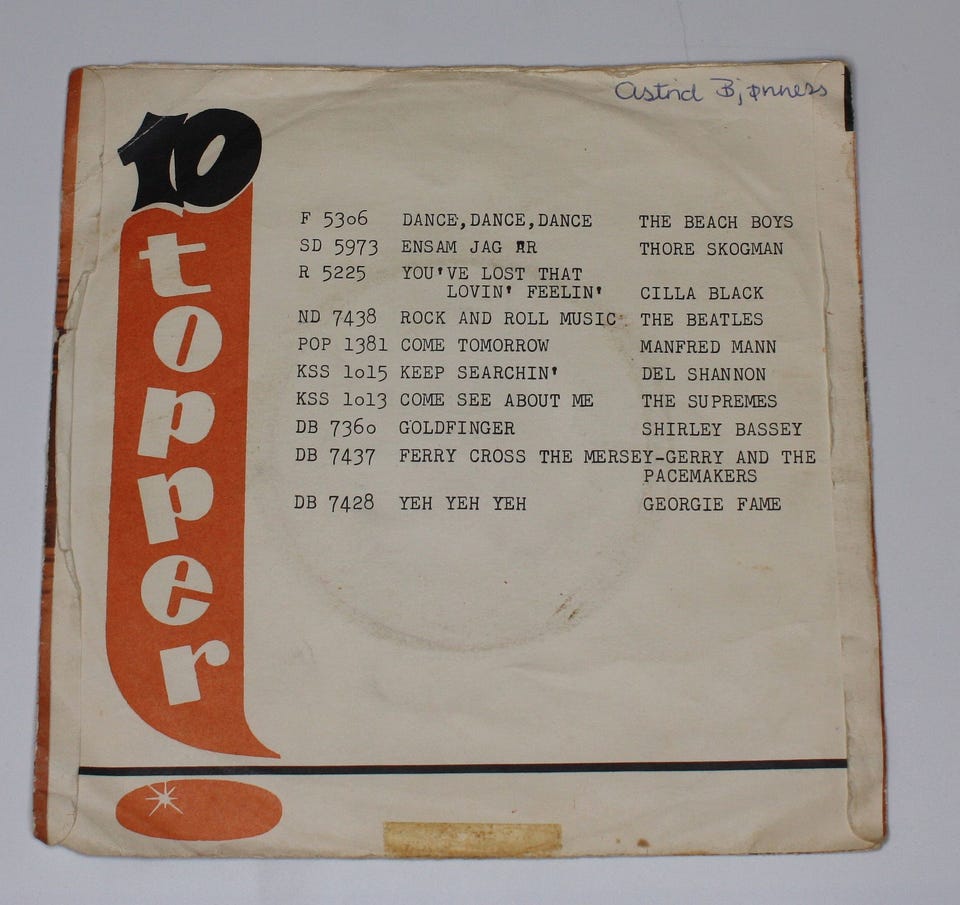 Astrid Bjønness
10
topper
F 5306 DANCE,DANCE,DANCE THE BEACH BOYS
SD 5973 ENSAM JAG ÄR THORE SKOGMAN
R 5225 YOU'VE LOST THAT
LOVIN' FEELIN' CILLA BLACK
ND 7438 ROCK AND ROLL MUSIC THE BEATLES
POP 1381 COME TOMORROW MANFRED MANN
KSS 1o15 KEEP SEARCHIN' DEL SHANNON
KSS 1o13 COME SEE ABOUT ME THE SUPREMES
DB 736o GOLDFINGER SHIRLEY BASSEY
DB 7437 FERRY CROSS THE MERSEY-GERRY AND THE
PACEMAKERS
DB 7428 YEH YEH YEH GEORGIE FAME